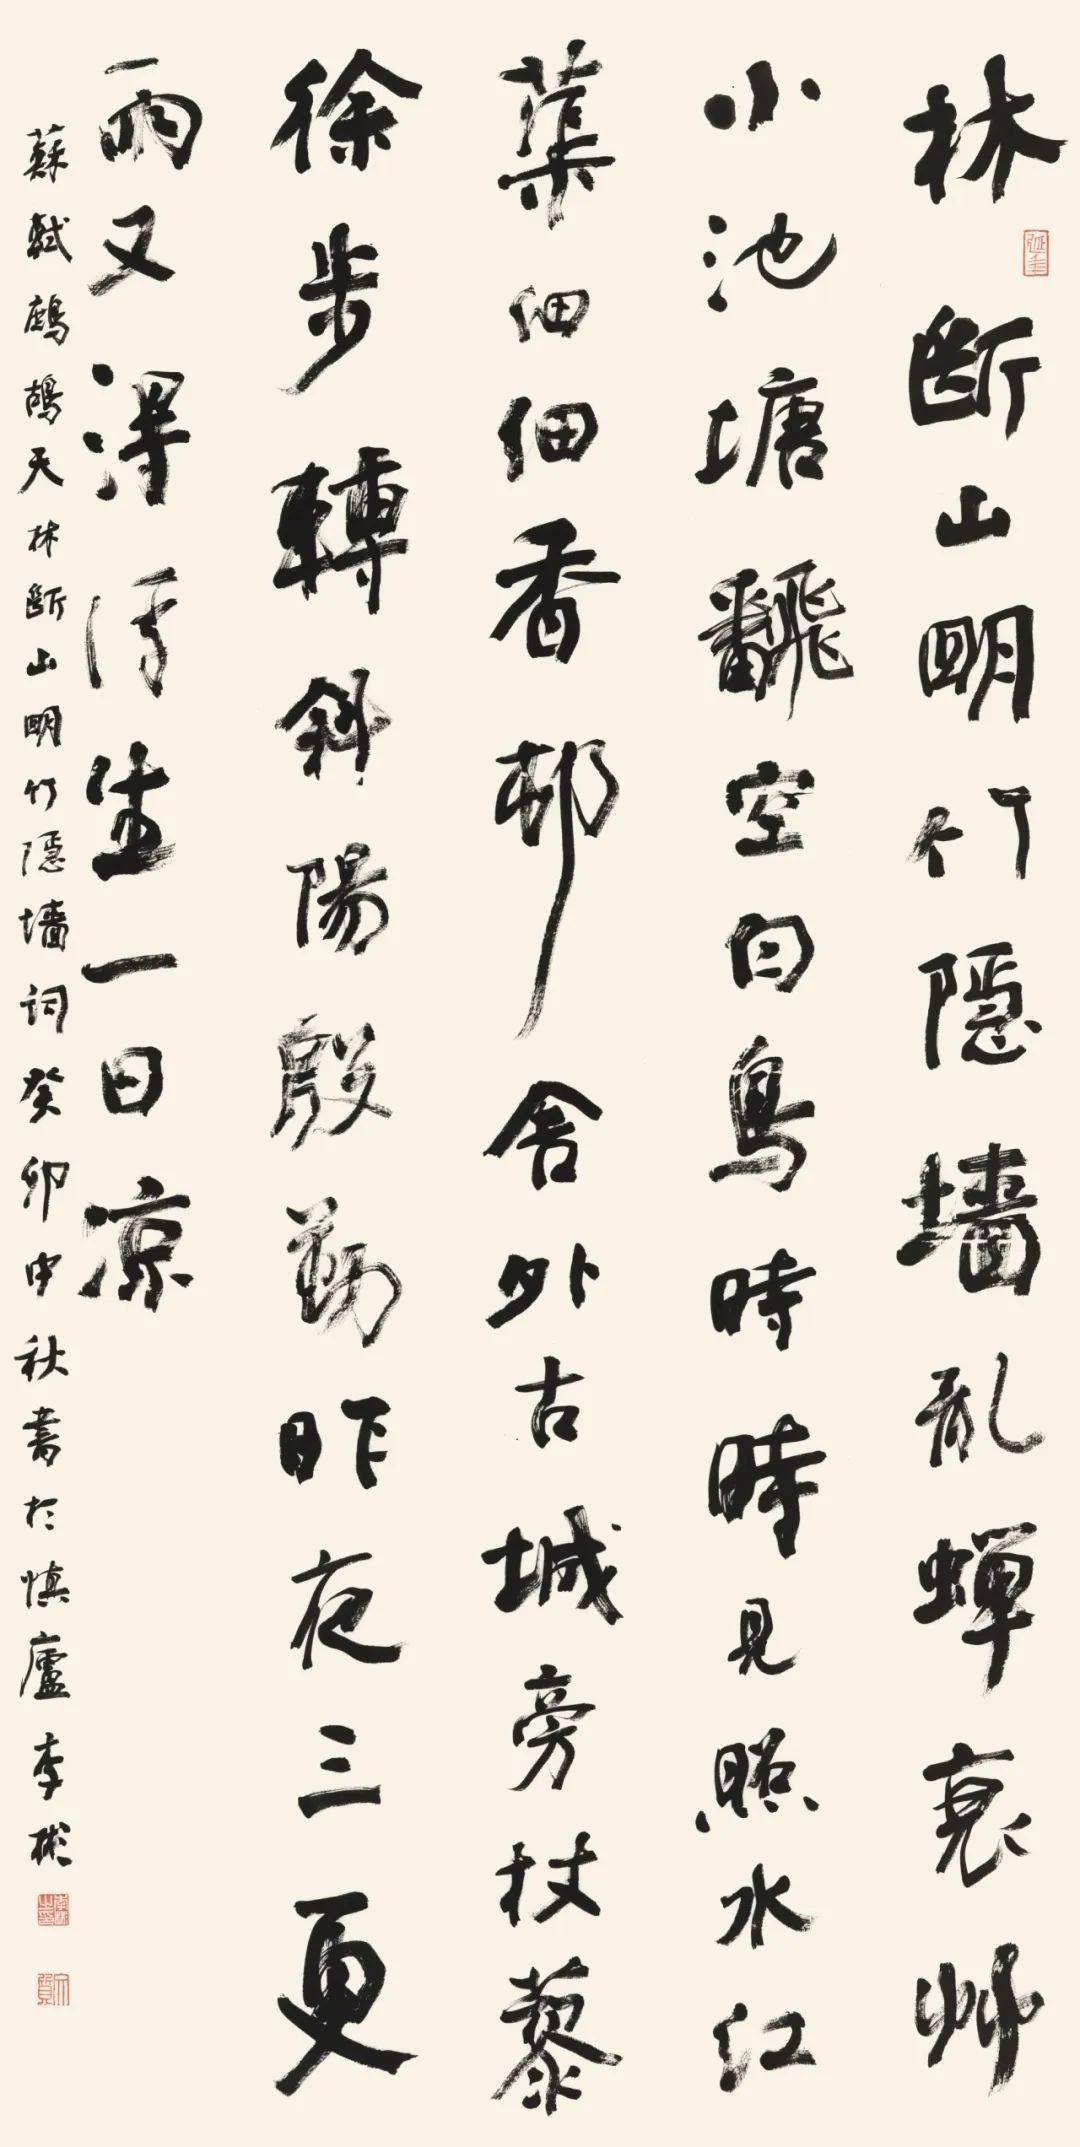 林斷山明竹隱墻亂蟬衰艸
小池塘飜空白鳥時時見照水紅
蕖細細香邨舍外古城旁杖藜
徐步轉斜陽殷勤昨夜三更
雨又得浮生一日涼
蘇軾鷓鴣天林斷山明竹隱墻詞癸卯中秋書於慎廬李彬